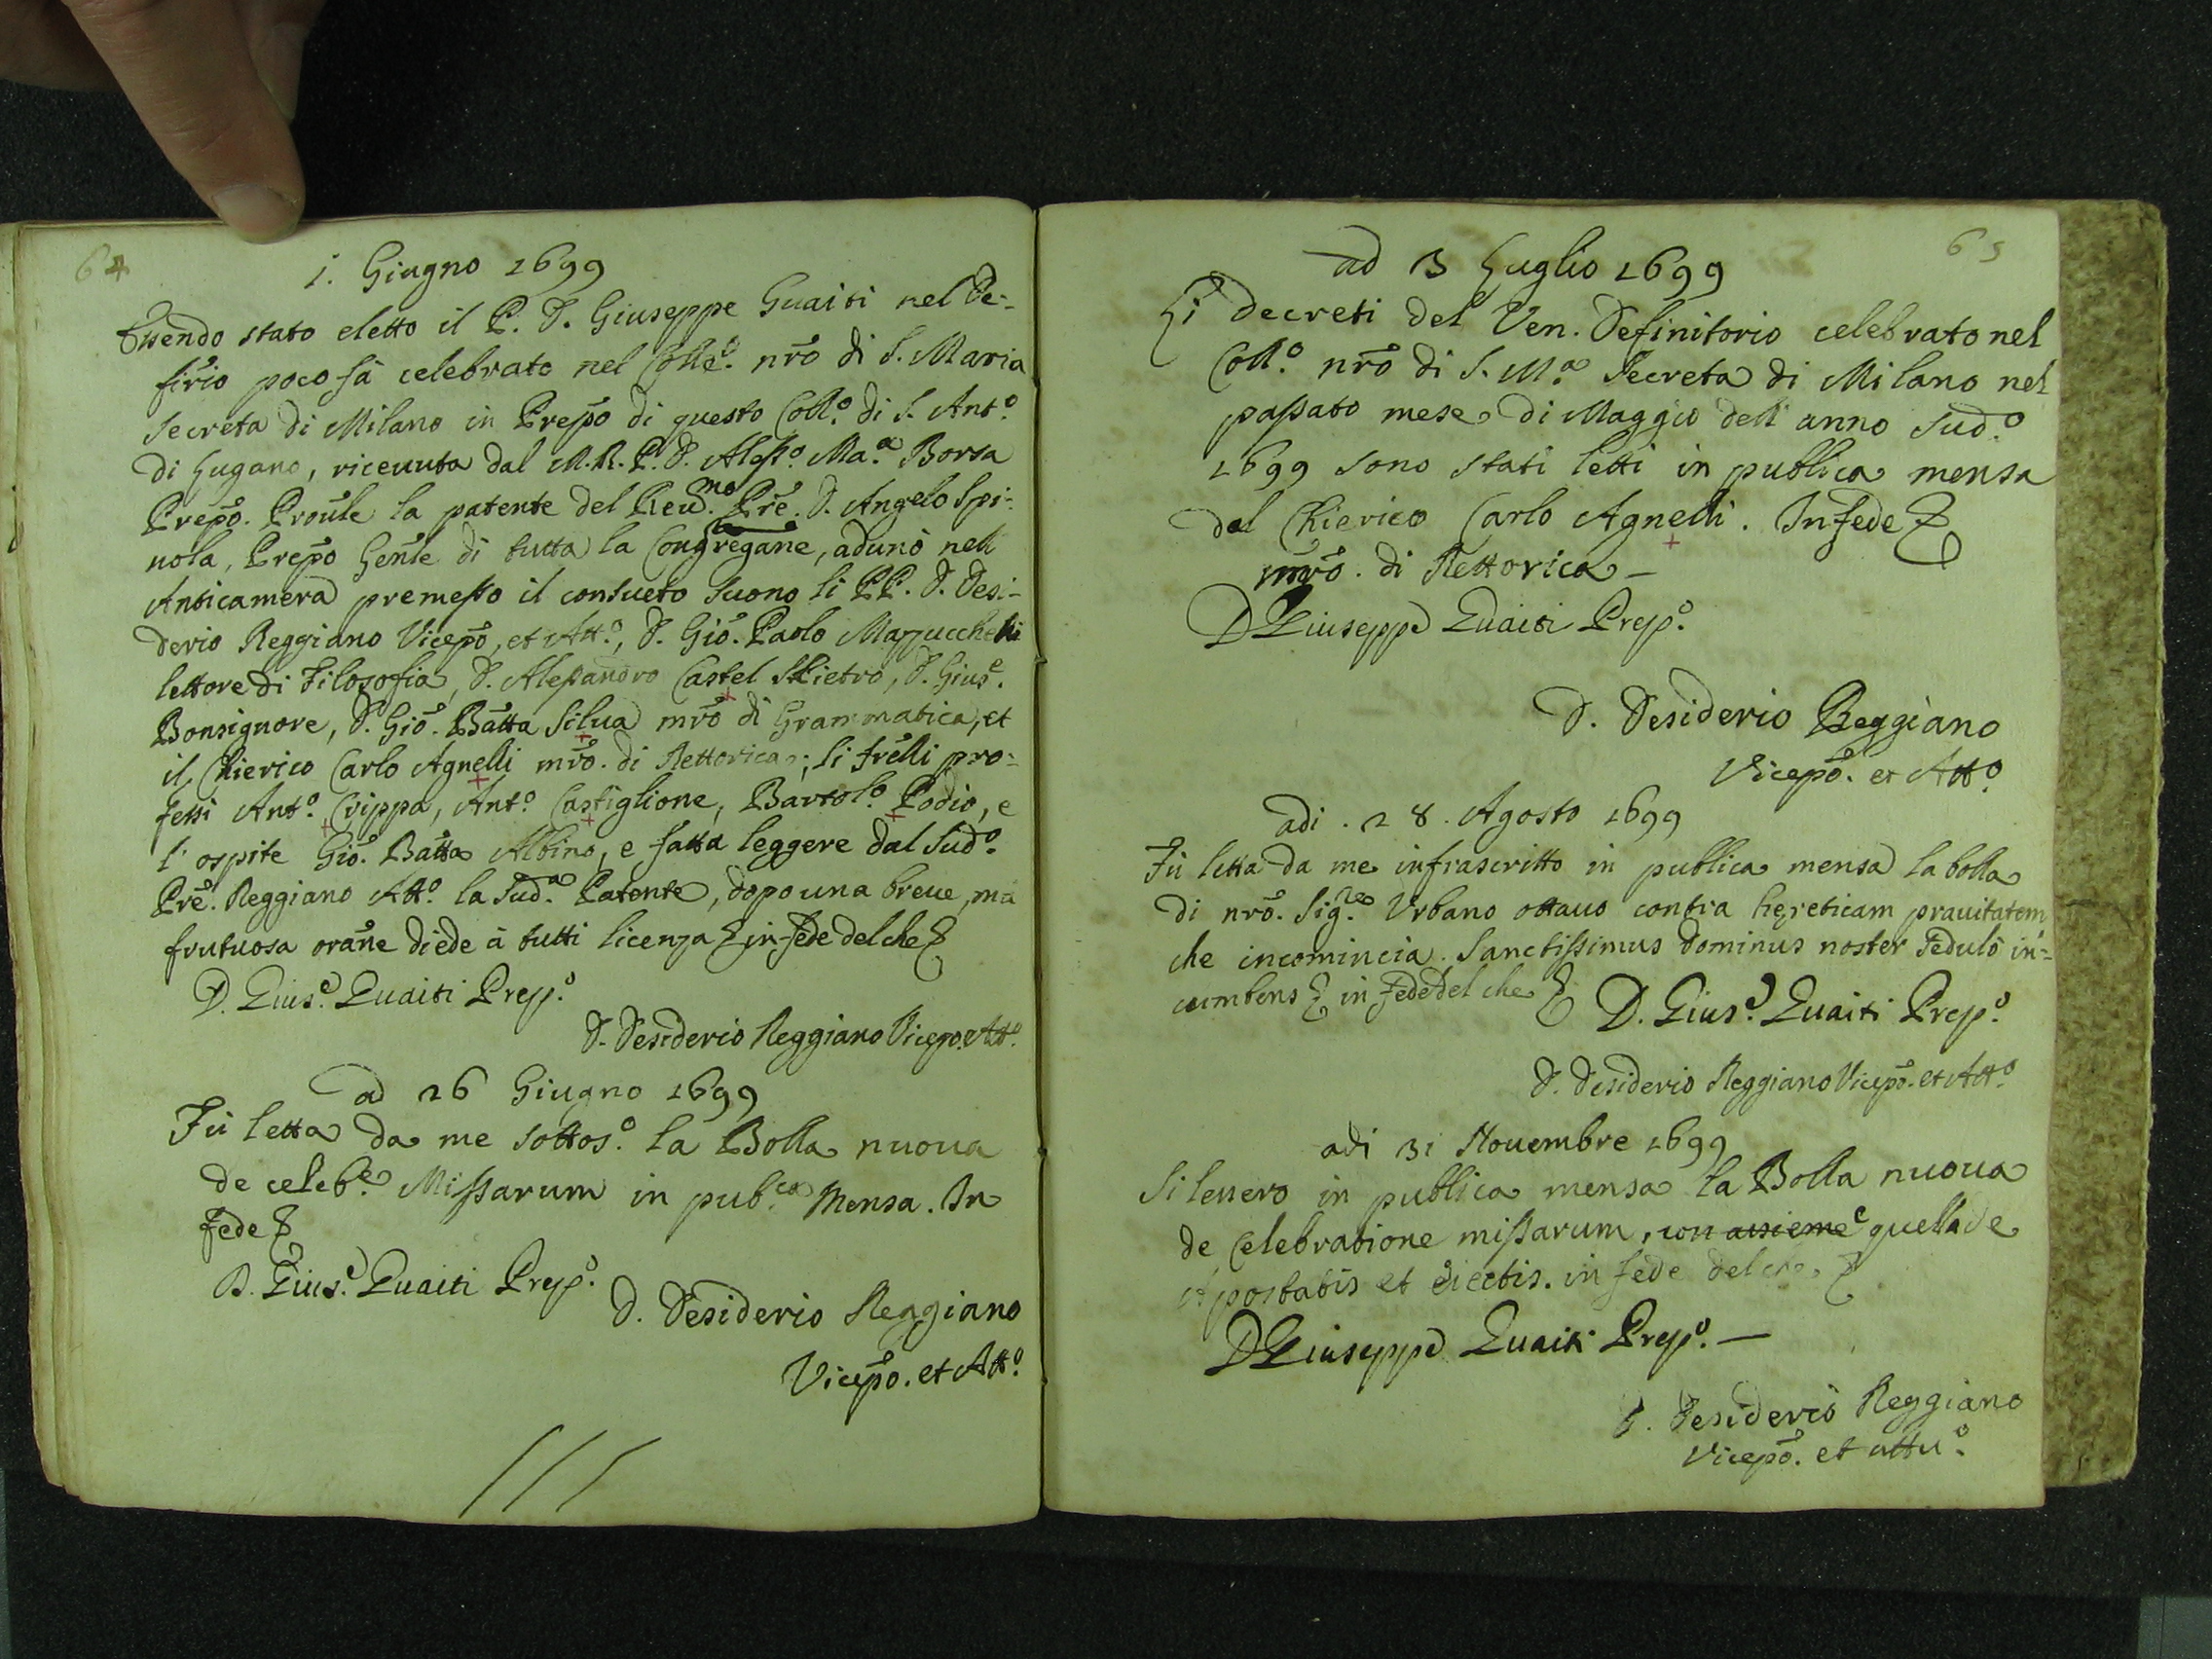 64
1. Giugno 1699
Essendo stato eletto il P. D. Giuseppe Guaiti nel De-
firio poco fà celebrato nel Colle.º nrō di S. Maria
Secreta di Milano in Prepō di questo Coll.º di S. Ant.º
di Lugano, riceuuta dal M.R.P. D. Aless.º Ma.ª Borsa
Prepō. Prōule la patente del Reu.mo Prē. D. Angelo Spi-
nola, Prepō Genle di tutta la Congregane, adunò nell
Anticamera premesso il consueto suono li PP. D. Desi-
derio Reggiano Vicepō, et Att.º, D. Giō. Paolo Mazzucchelli
lettore di Filosofia, D. Alessandro Castel S Pietro, D. Gius.e
Bonsignore, D. Giō. Batta Silua mrō di Grammatica, et
il Chierico Carlo Agnelli mrō. di Rettorica; li frelli pro-
fessi Ant.º Crippa, Ant.º Castiglione, Bartol.º Podio, e
l'ospite Giō. Batta Albino, e fatta leggere dal Sud.º
Prē. Reggiano Att.º la Sud.ª Patente, dopo una breue, ma
frutuosa orāne diede à tutti licenza & in fede del che &
D. Gius.e Guaiti Prep.º
D. Desiderio Reggiano Vicepo. et Att.º
ad 26 Giugno 1699
Fù letta da me sottos.º la Bolla nuoua
de celeb.e Missarum in pub.ca Mensa. In
fede &
D. Gius.e Guaiti Prep.º
D. Desiderio Reggiano
Vicepō. et Att.º
65
ad 3 Luglio 1699
Li decreti del Ven. Definitorio celebrato nel
Coll.º nrō di S. M.ª Secreta di Milano nel
passato mese di Maggio dell'anno sud.º
1699 sono stati letti in publica mensa
dal Chierico Carlo Agnelli. In fede &
mrō. di Rettorica —
D Giuseppe Guaiti Prep.º
D. Desiderio Reggiano
Vicepō. et Att.º
adi . 28 . Agosto 1699
Fù letta da me infrascritto in publica mensa la bolla
di nrō. Sig.re Vrbano ottauo contra hereticam prauitatem
che incomincia. Sanctissimus Dominus noster Sedulò in-
cumbens & in fede del che &
D. Gius.e Guaiti Prep.º
D. Desiderio Reggiano Vicepō. et Att.º
adi 31 Nouembre 1699
Si lessero in publica mensa la Bolla nuoua
de Celebratione missarum, con assieme e quella de
Apostatis et eiectis. in fede del che &
D Giuseppe Guaiti Prep.º —
D. Desiderio Reggiano
Vicepō. et attu.º